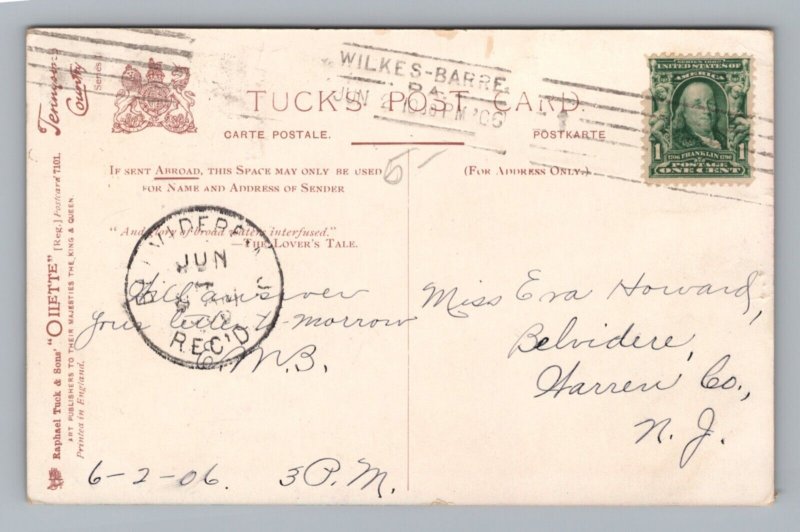 Tennyson
County
Series
Raphael Tuck & Sons' "OILETTE" [Reg.] Postcard 7101.
ART PUBLISHERS TO THEIR MAJESTIES THE KING & QUEEN.
Printed in England.
WILKES-BARRE,
PA.
JUN 2 '06
TUCK'S POST CARD.
CARTE POSTALE.
POSTKARTE
IF SENT ABROAD, THIS SPACE MAY ONLY BE USED
FOR NAME AND ADDRESS OF SENDER
"And glory of broad waters interfused."
—THE LOVER'S TALE.
JUN
REC'D
Will answer
your letter to-morrow
M.B.
6-2-06. 3 P.M.
(FOR ADDRESS ONLY.)
SERIES 1902
UNITED STATES OF
AMERICA
1 FRANKLIN 1
POSTAGE
ONE CENT
Miss Eva Howard,
Belvidere,
Warren Co.,
N. J.